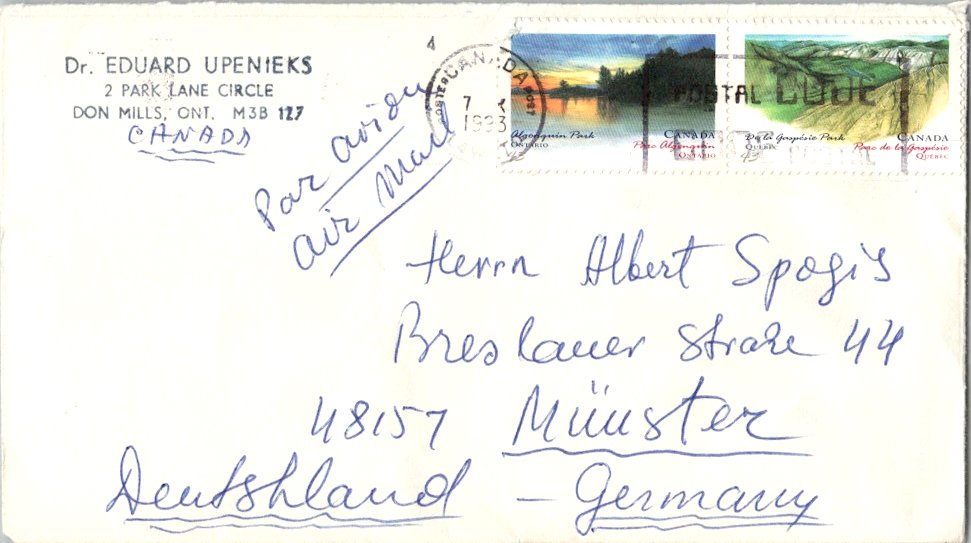 Dr. EDUARD UPENIEKS
2 PARK LANE CIRCLE
DON MILLS, ONT. M3B 1Z7
CANADA
Par avion
Air Mail
4
CANADA
7
1993
POSTAL CODE
Algonquin Park
ONTARIO
CANADA
Parc Algonquin
ONTARIO
De la Gaspésie Park
QUEBEC
43
CANADA
Parc de la Gaspésie
QUÉBEC
Herrn Albert Spogis
Breslauer Straße 44
48157 Münster
Deutshland - Germany